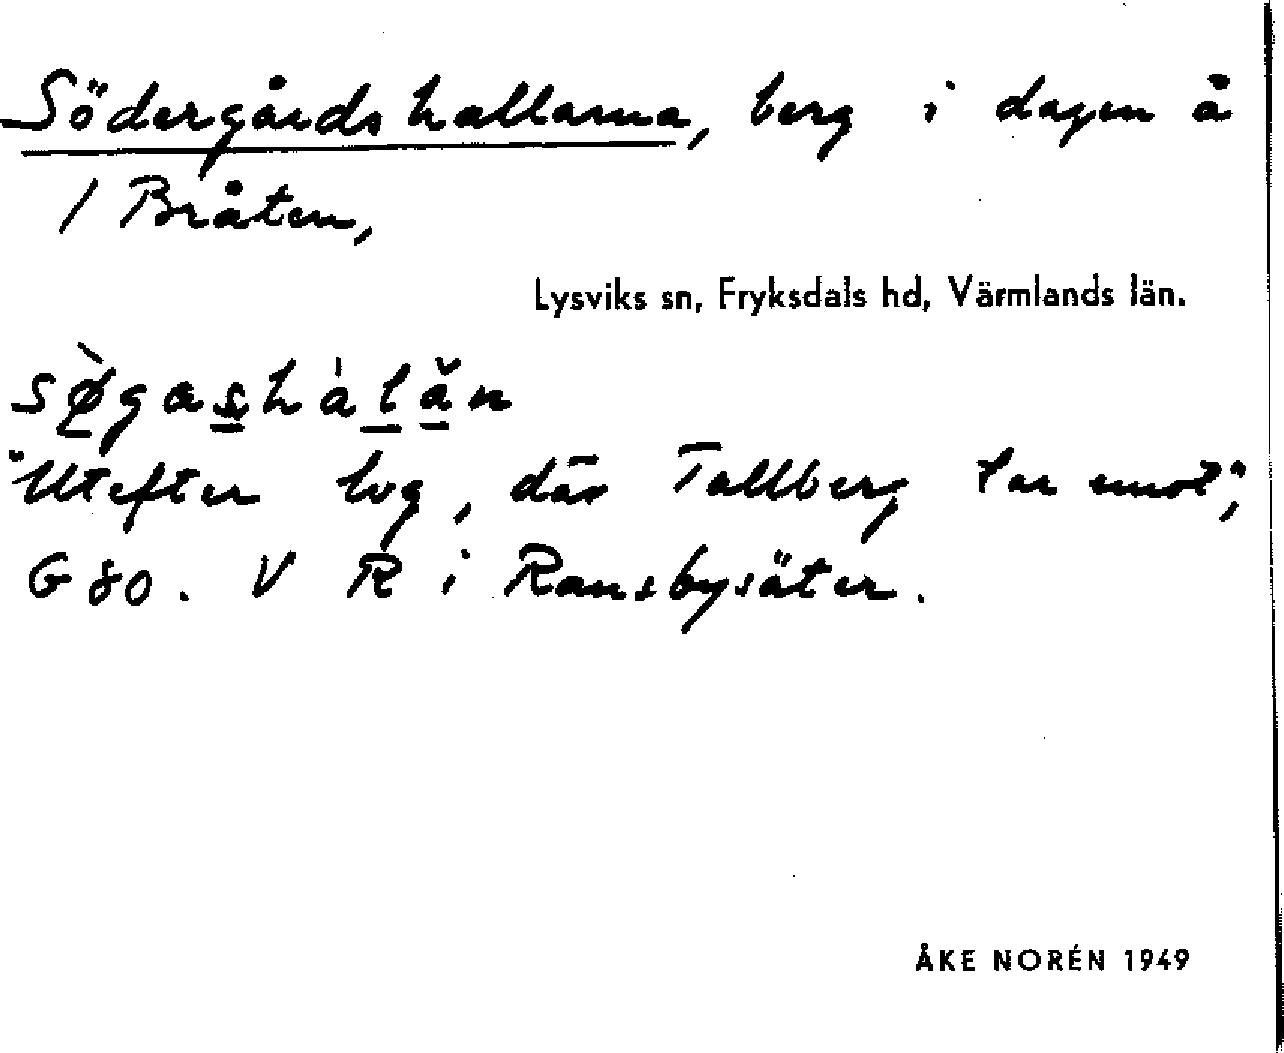 Södergårdshallarna, berg i dagen å
1 Bråten,
Lysviks sn, Fryksdals hd, Värmlands län.
"Utefter väg, där Tallberg tar emot",
G 80. V R i Ransbysäter.
ÅKE NORÉN 1949